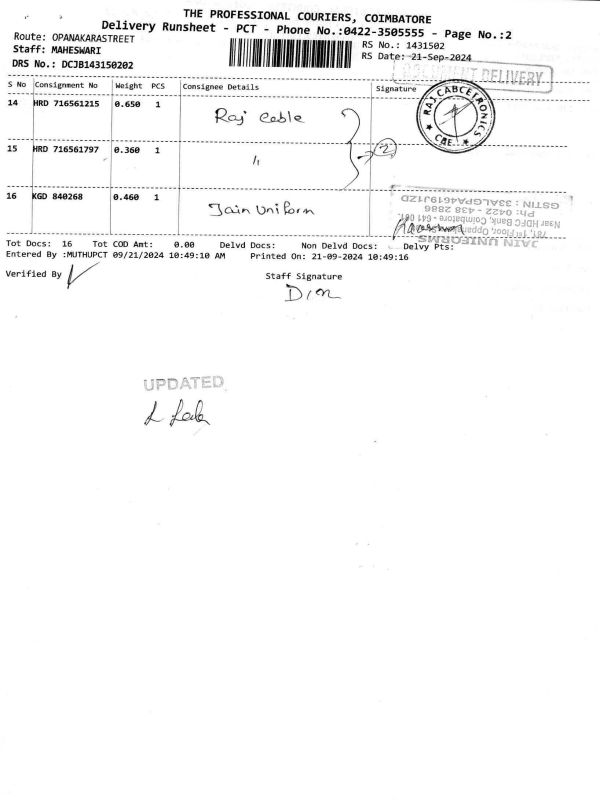 THE PROFESSIONAL COURIERS, COIMBATORE
Delivery Runsheet - PCT - Phone No.:0422-3505555 - Page No.:2
Route: OPANAKARASTREET
RS No.: 1431502
Staff: MAHESWARI
RS Date: 21-Sep-2024
DRS No.: DCJB143150202
DELIVERY
S No Consignment No Weight PCS Consignee Details Signature
14 HRD 716561215 0.650 1 Raj Cable
RAJ CABCETRONICS
CBE.
15 HRD 716561797 0.360 1 〃 2
16 KGD 840268 0.460 1 Jain Uniform
JAIN UNIFORMS
Near HDFC Bank, Coimbatore - 641 001.
Ph: 0422 - 438 2886
GSTIN : 33ALGPA4619J1ZD
Tot Docs: 16 Tot COD Amt: 0.00 Delvd Docs: Non Delvd Docs: Delvy Pts:
Entered By :MUTHUPCT 09/21/2024 10:49:10 AM Printed On: 21-09-2024 10:49:16
Verified By
Staff Signature
UPDATED